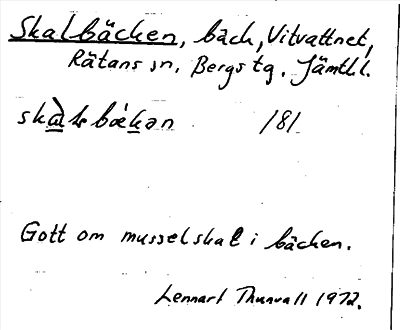 Skalbäcken, bäck, Vitvattnet,
Rätans sn, Bergs tg. Jämtl.
/8/
Gott om musselskal i bäcken.
Lennart Thunvall 1972.